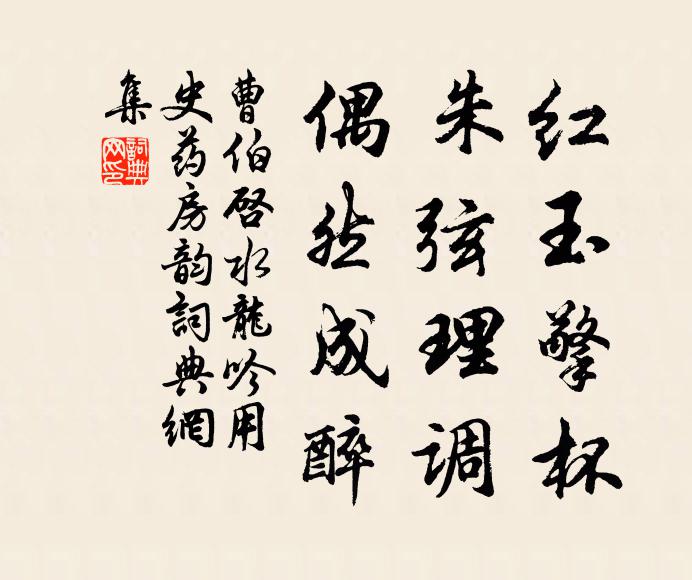 红玉擎杯
朱弦理调
偶然成醉
曹伯启水龍吟用
史药房韵詞典網
集
詞典
网印